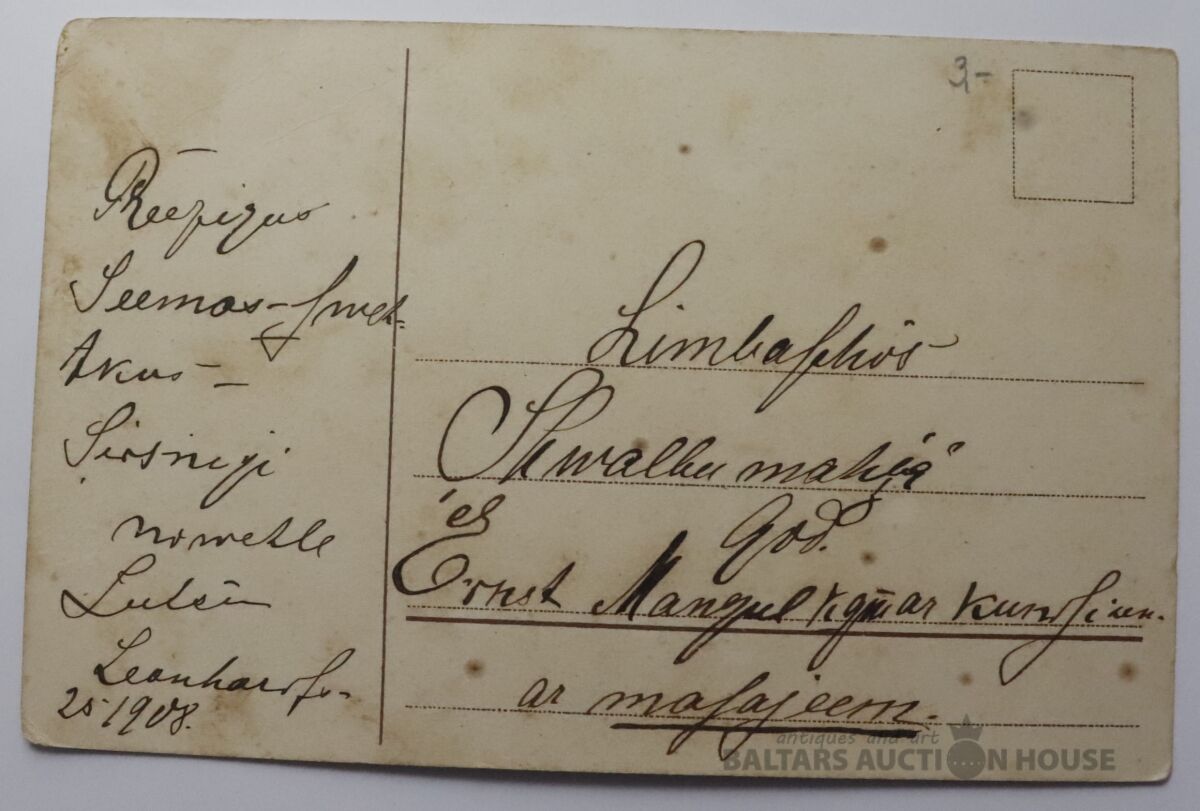 3-
Preezigus
Seemas-swet-
tkus-
Sirsnigi
nowehle
Leonhards-
25 1908.
Limbaschös
God.
Ernst Mangul kgm ar kundsien.
ar masajeem.
antiques and art
BALTARS AUCTION HOUSE